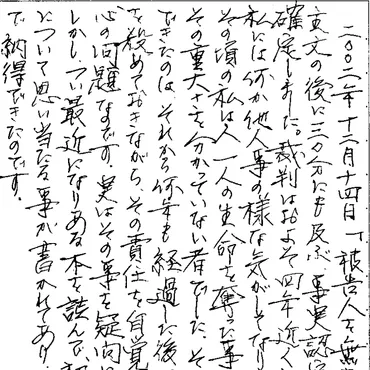 二〇〇二年十二月十四日「被告人を無
主文の後に三分にも及ぶ、事実認定
確定しました。裁判はおよそ四年近く
私には何か他人事の様な気がしてなり
その頃の私は人一人の生命を奪た事
その重大さを分かっていない者でした。そ
できたのは、それから何年も経過した後
を殺めておきながら、その責任を自覚
心の問題なのです。実はその事を疑問に
しかし、つい最近になりある本を読んで、
について思い当たる事が書かれてあり、
で納得できたのです。